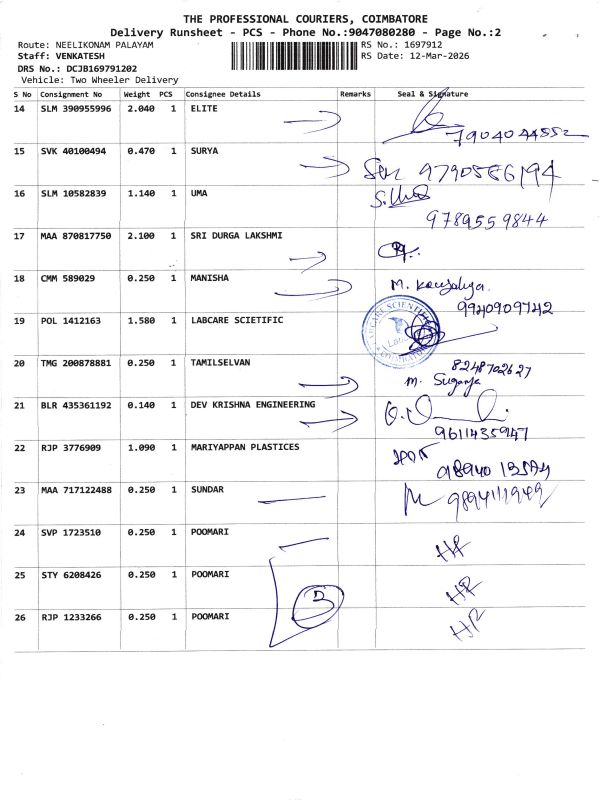 THE PROFESSIONAL COURIERS, COIMBATORE
Delivery Runsheet - PCS - Phone No.:9047080280 - Page No.:2
Route: NEELIKONAM PALAYAM RS No.: 1697912
Staff: VENKATESH RS Date: 12-Mar-2026
DRS No.: DCJB169791202
Vehicle: Two Wheeler Delivery
S No Consignment No Weight PCS Consignee Details Remarks Seal & Signature
14 SLM 390955996 2.040 1 ELITE
7904044552
15 SVK 40100494 0.470 1 SURYA
9790586194
16 SLM 10582839 1.140 1 UMA
9789559844
17 MAA 870817750 2.100 1 SRI DURGA LAKSHMI
18 CMM 589029 0.250 1 MANISHA M. Kousalya.
9940909742
19 POL 1412163 1.580 1 LABCARE SCIETIFIC
20 TMG 200878881 0.250 1 TAMILSELVAN 8248702627
M. Suganya
21 BLR 435361192 0.140 1 DEV KRISHNA ENGINEERING
9611435947
22 RJP 3776909 1.090 1 MARIYAPPAN PLASTICES
23 MAA 717122488 0.250 1 SUNDAR 9894111949
24 SVP 1723510 0.250 1 POOMARI
25 STY 6208426 0.250 1 POOMARI
26 RJP 1233266 0.250 1 POOMARI